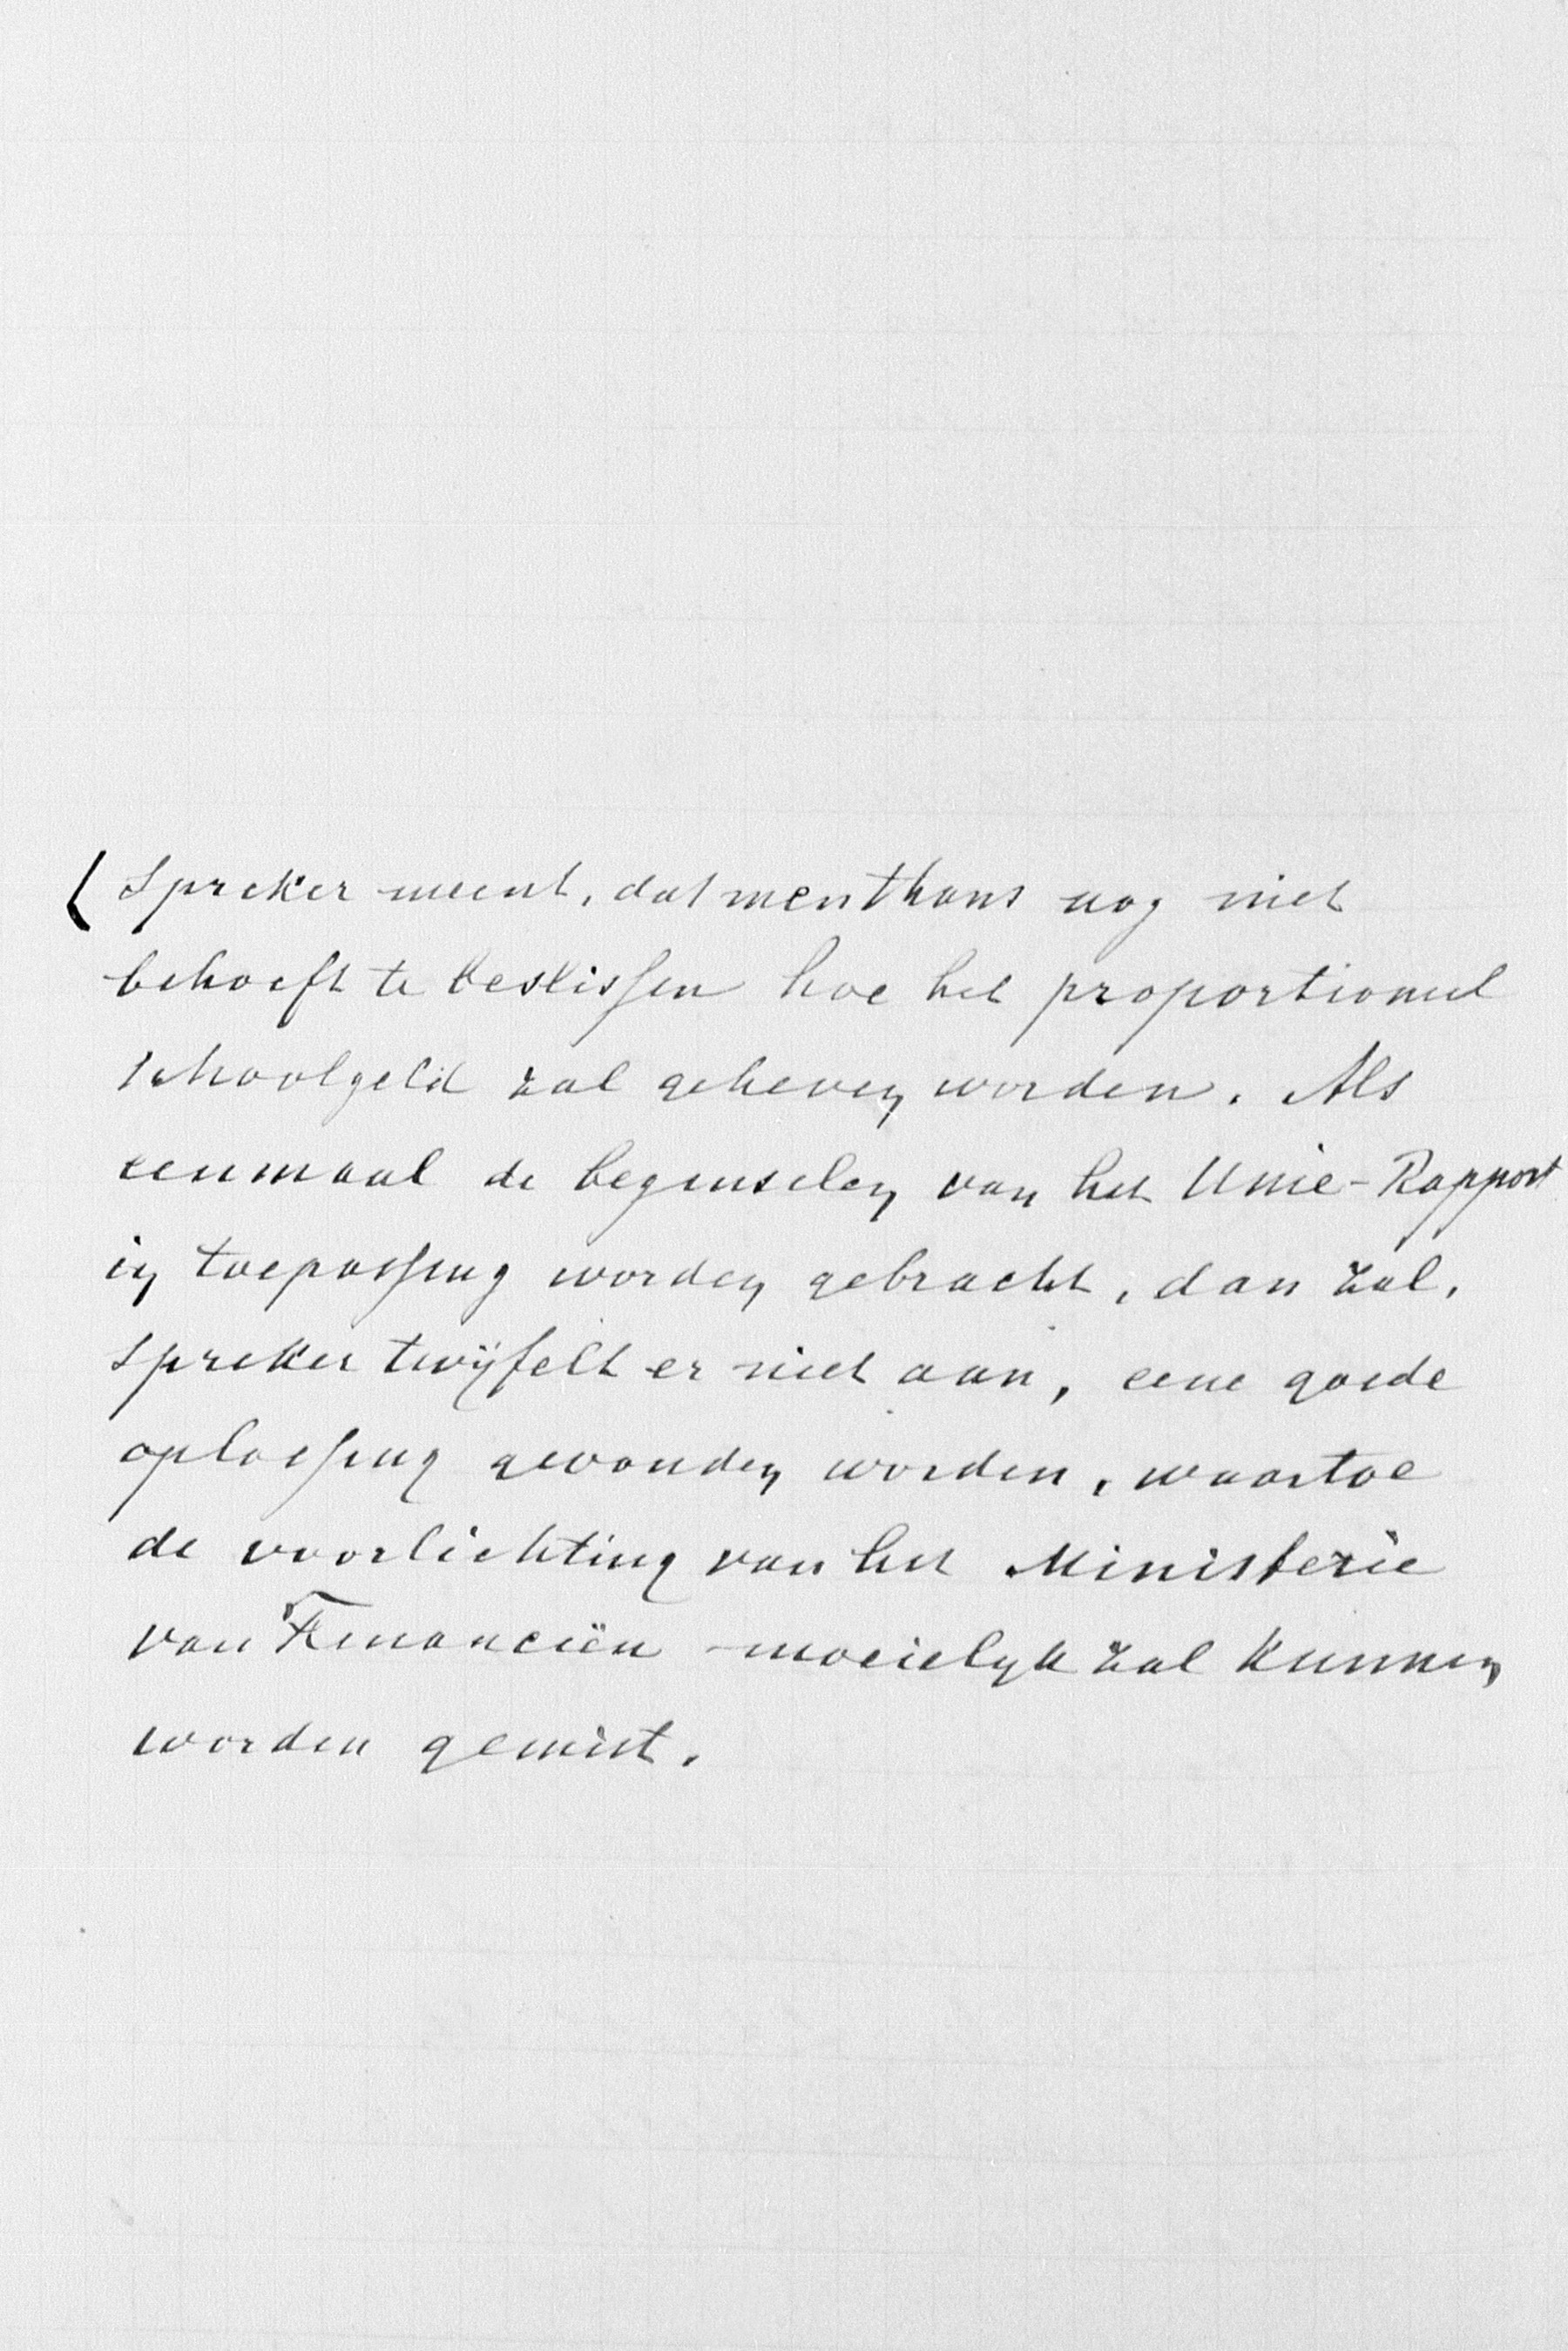 ( Spreker meent, dat men thans nog niet
behoeft te beslissen hoe het proportioneel
schoolgeld zal geheven worden. Als
eenmaal de beginselen van het Unie-Rapport
in toepassing worden gebracht, dan zal,
spreker twijfelt er niet aan, eene goede
oplossing gevonden worden, waartoe
de voorlichting van het Ministerie
van Financiën moeielijk zal kunnen
worden gemist.